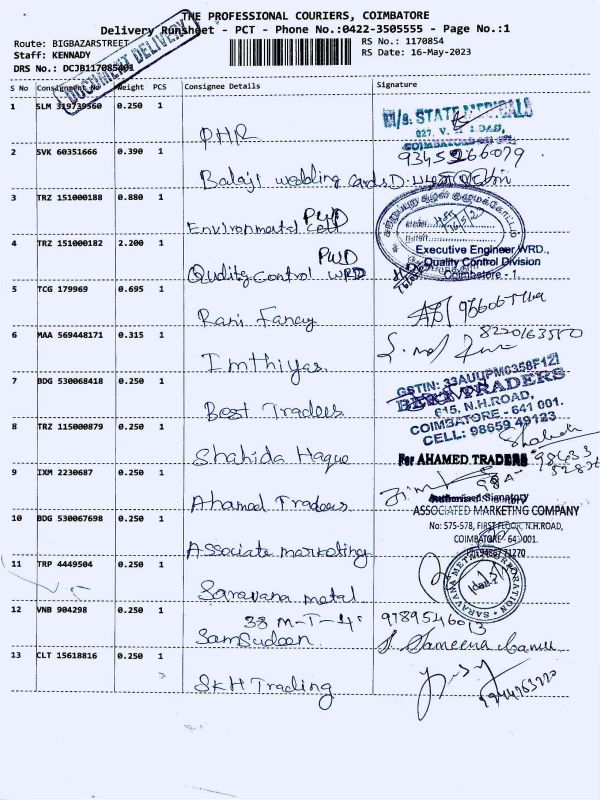 THE PROFESSIONAL COURIERS, COIMBATORE
Delivery Runsheet - PCT - Phone No.:0422-3505555 - Page No.:1
Route: BIGBAZARSTREET
RS No.: 1170854
Staff: KENNADY
RS Date: 16-May-2023
DRS No.: DCJB11708540
DOCUMENT DELIVERY
S No Consignment No Weight PCS Consignee Details Signature
1 SLM 319739560 0.250 1
PHR
M/s. STATE MEDICALS
COIMBATORE
2 SVK 60351666 0.390 1
9345266079
Balaji wedding cards
3 TRZ 151000188 0.880 1
Environmental Cell PWD
4 TRZ 151000182 2.200 1
Quality Control WRD PWD
Executive Engineer WRD.,
Quality Control Division
Coimbatore - 1.
5 TCG 179969 0.695 1
Rani Fancy
6 MAA 569448171 0.315 1
Imthiyas
8220163550
7 BDG 530068418 0.250 1
Best Traders
GSTIN: 33AUUPM0358F1ZI
BEST TRADERS
615, N.H.ROAD,
COIMBATORE - 641 001.
CELL: 98659 49123
8 TRZ 115000879 0.250 1
Shahida Haque
For AHAMED TRADERS
9 IXM 2230687 0.250 1
Ahamed Traders
Authorised Signatory
10 BDG 530067698 0.250 1
Associate marketing
ASSOCIATED MARKETING COMPANY
No: 575-578, FIRST FLOOR, N.H.ROAD,
COIMBATORE - 641 001.
11 TRP 4449504 0.250 1
Saravana metal
SARAVANA METAL CORPORATION
12 VNB 904298 0.250 1
38 M-T-4
Samsudeen
9789546013
S Sameena
13 CLT 15618816 0.250 1
SKH Trading